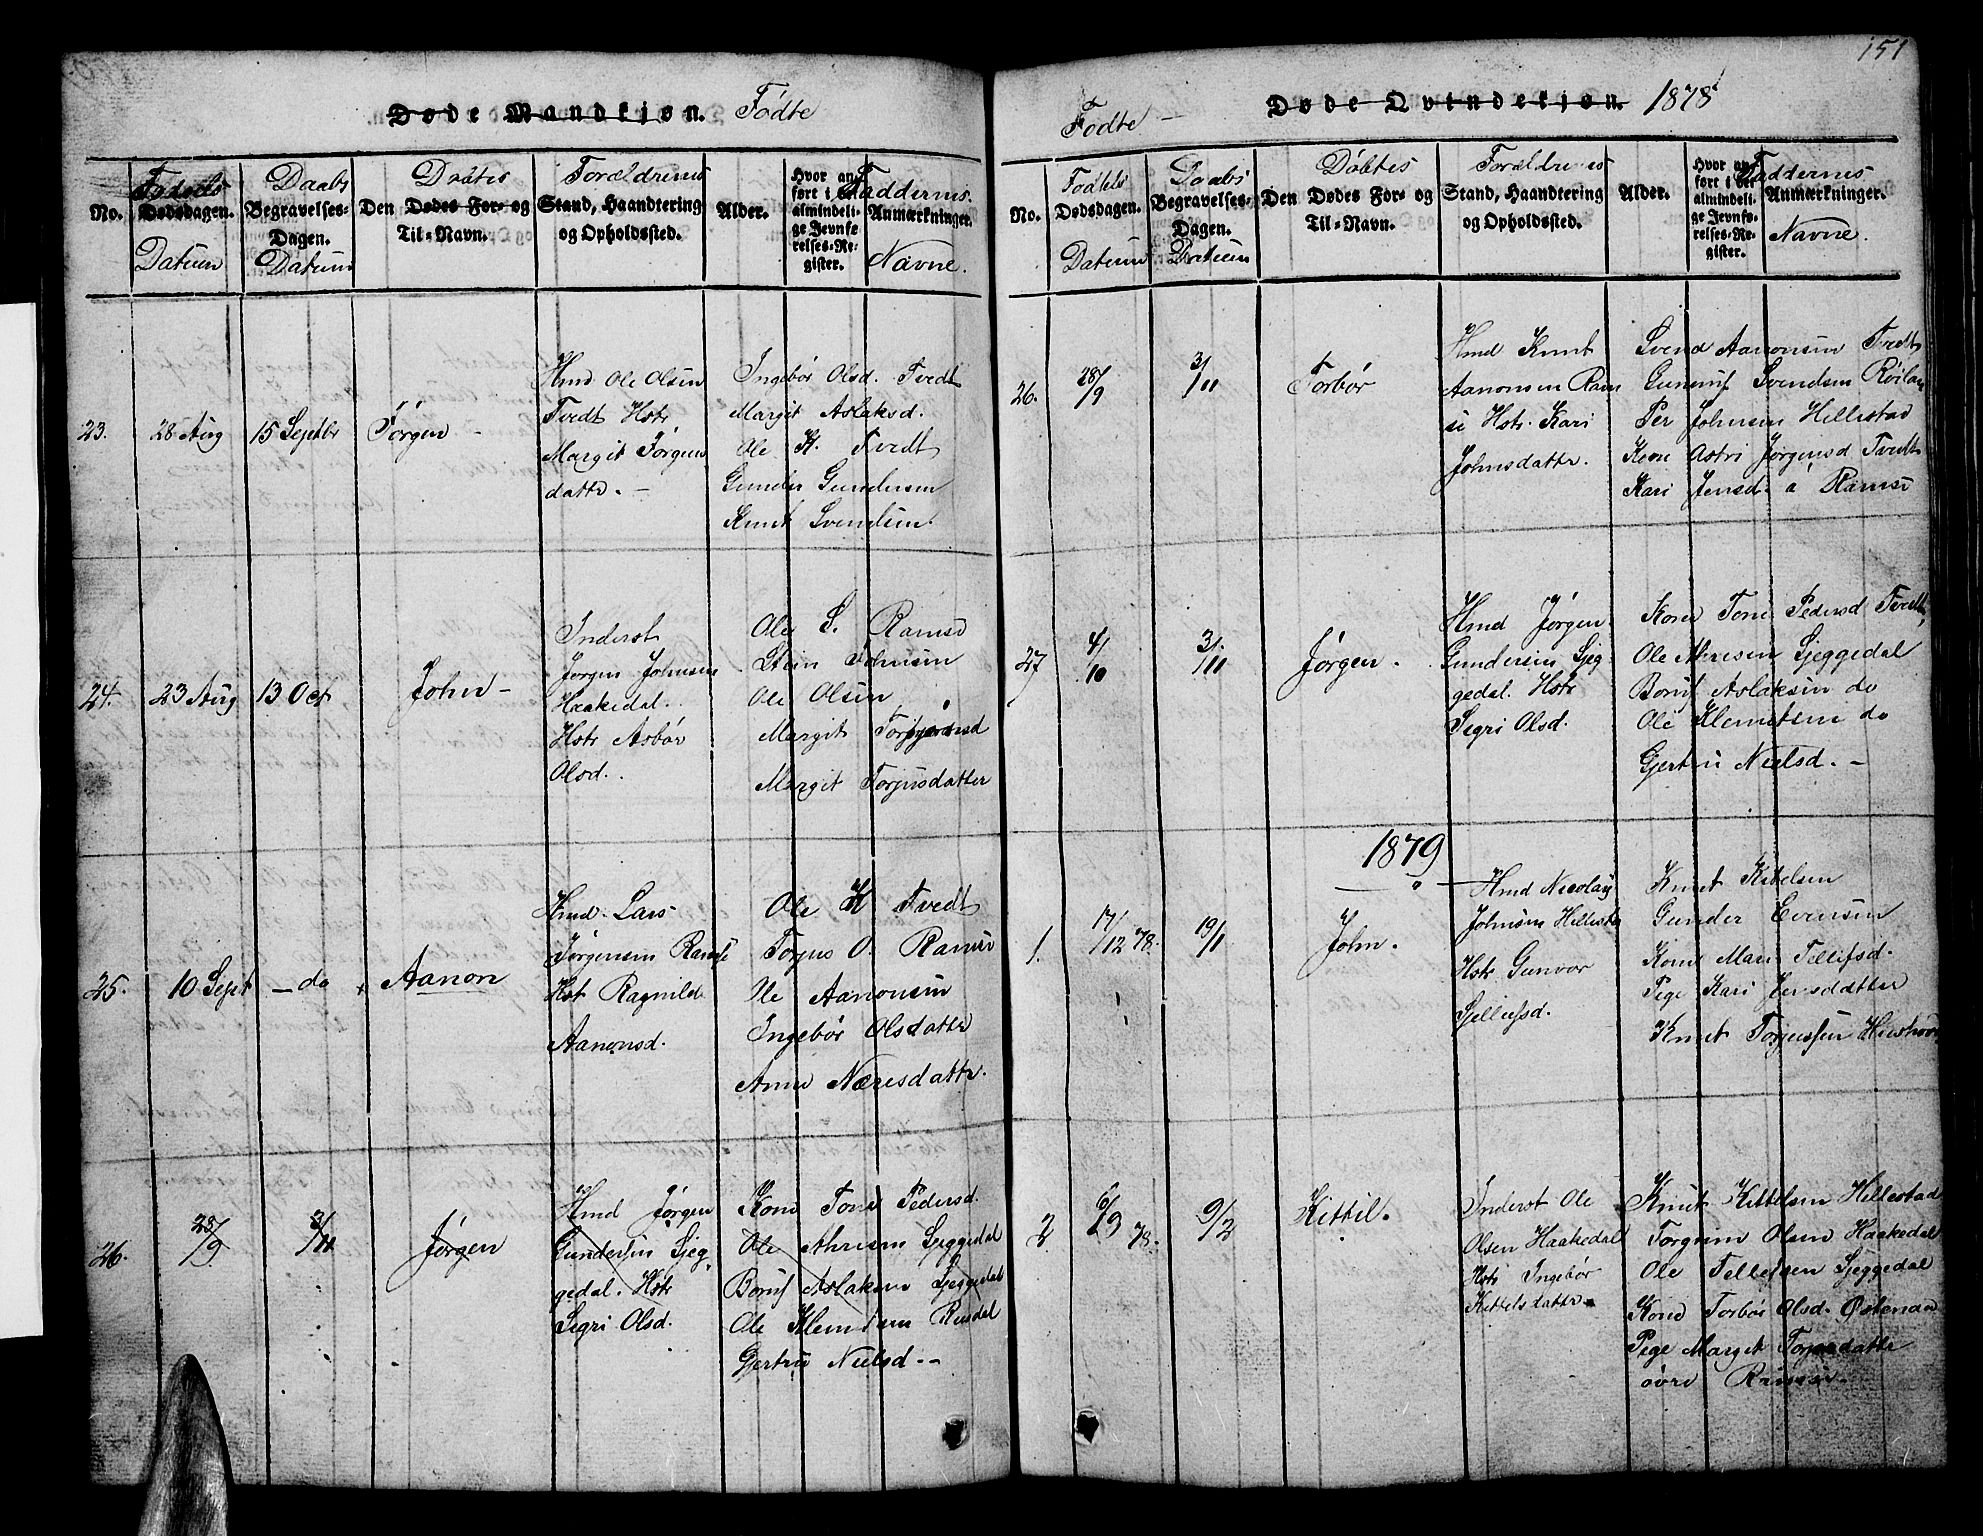 151
Døde Mandkjøn. Fødte
Fødselsdagen. Daabs Døbtes Forældrenes Faddernes
No. Dødsdagen. Begravelses-Dagen. Den Dødes For- og Til-Navn. Stand, Haandtering og Opholdssted. Alder. Hvor anført i det almindelige Jevnførelses-Register. Anmærkninger.
Datum Datum Navne.
23. 28 Aug 15 Septbr Jørgen -
Hmd Ole Olsen
Tvedt Hstr
Margit Jørgens
datter. -
Ingebør Olsd. Tvedt
Margit Aslaksd.
Ole K. Tvedt
Gunder Gundersen
Knut Svendsen.
24. 23 Aug 13 Oct John -
Inderst
Jørgen Johnsen
Haakedal.
Hstr Asbør
Olsd.
Ole S. Ramse
Stein Johnsen
Ole Olsen
Margit
Margit Torjusdatter
25. 10 Sept - do Aanon
Hmd. Lars
Jørgensen Ramse
Hst Ragnilde
Aanonsd.
Ole K Tvedt
Torjus O. Ramse
Ole Aanonsen
Ingebør Olsdattr
Anne Næresdattr.
26. 28/9 3/11 Jørgen
Hmd Jørgen
Gundersen Sjeg
gedal. Hstr
Segri Olsd.
Kone Tone Pedersd.
Ole Ahresen Sjeggedal
Boruf Aslaksen Sjeggedal
Ole Klemetsen Risdal
Gjertru Nielsd. -
Fødte - Døde Qvindekjøn. 1878
Fødsels Daabs Døbtes Forældrenes Faddernes
No. Dødsdagen. Begravelses-Dagen. Den Dødes For- og Til-Navn. Stand, Haandtering og Opholdssted. Alder. Hvor anført i det almindelige Jevnførelses-Register. Anmærkninger.
Datum Datum Navne.
26. 28/9 3/11 Torbør
Hmd Knut
Aanonsen Ram
se Hstr. Kari
Johnsdattr.
Svend Aanonsen Tvedt
Gunnuf Svendsen Røiland
Per Johnsen Hillestad
Kone Astri Jørgensd Tvedt
Kari Jensd. a Ramse
27 4/10 3/11 Jørgen.
Hmd Jørgen
Gundersen Sjeg
gedal. Hstr
Segri Olsd.
Kone Tone Pedersd Tvedt,
Ole Ahresen Sjeggedal
Boruf Aslaksen do
Ole Klemetsen do
Gjertru Nielsd. -
1879
1. 17/12 78. 19/1 John.
Hmd Nicolay
Johnsen Hillesta
Hstr Gunvor
Tjellefsd.
Knut Kitelsen
Gunder Evensen
Kone Mari Tellefsd.
Pige Kari Jensdatter
Knut Torjussen
2. 6/9 78. 9/2 Kittil.
Inderst Ole
Olsen Haakedal
Hstr Ingebør
Kittelsdattr.
Knut Kittelsen Hillestad
Torgrim Olsen Haakedal
Ole Tellefsen Sjeggedal
Kone Torbør Olsd.
Pige Margit Torjusdattr
øvre Ramse.